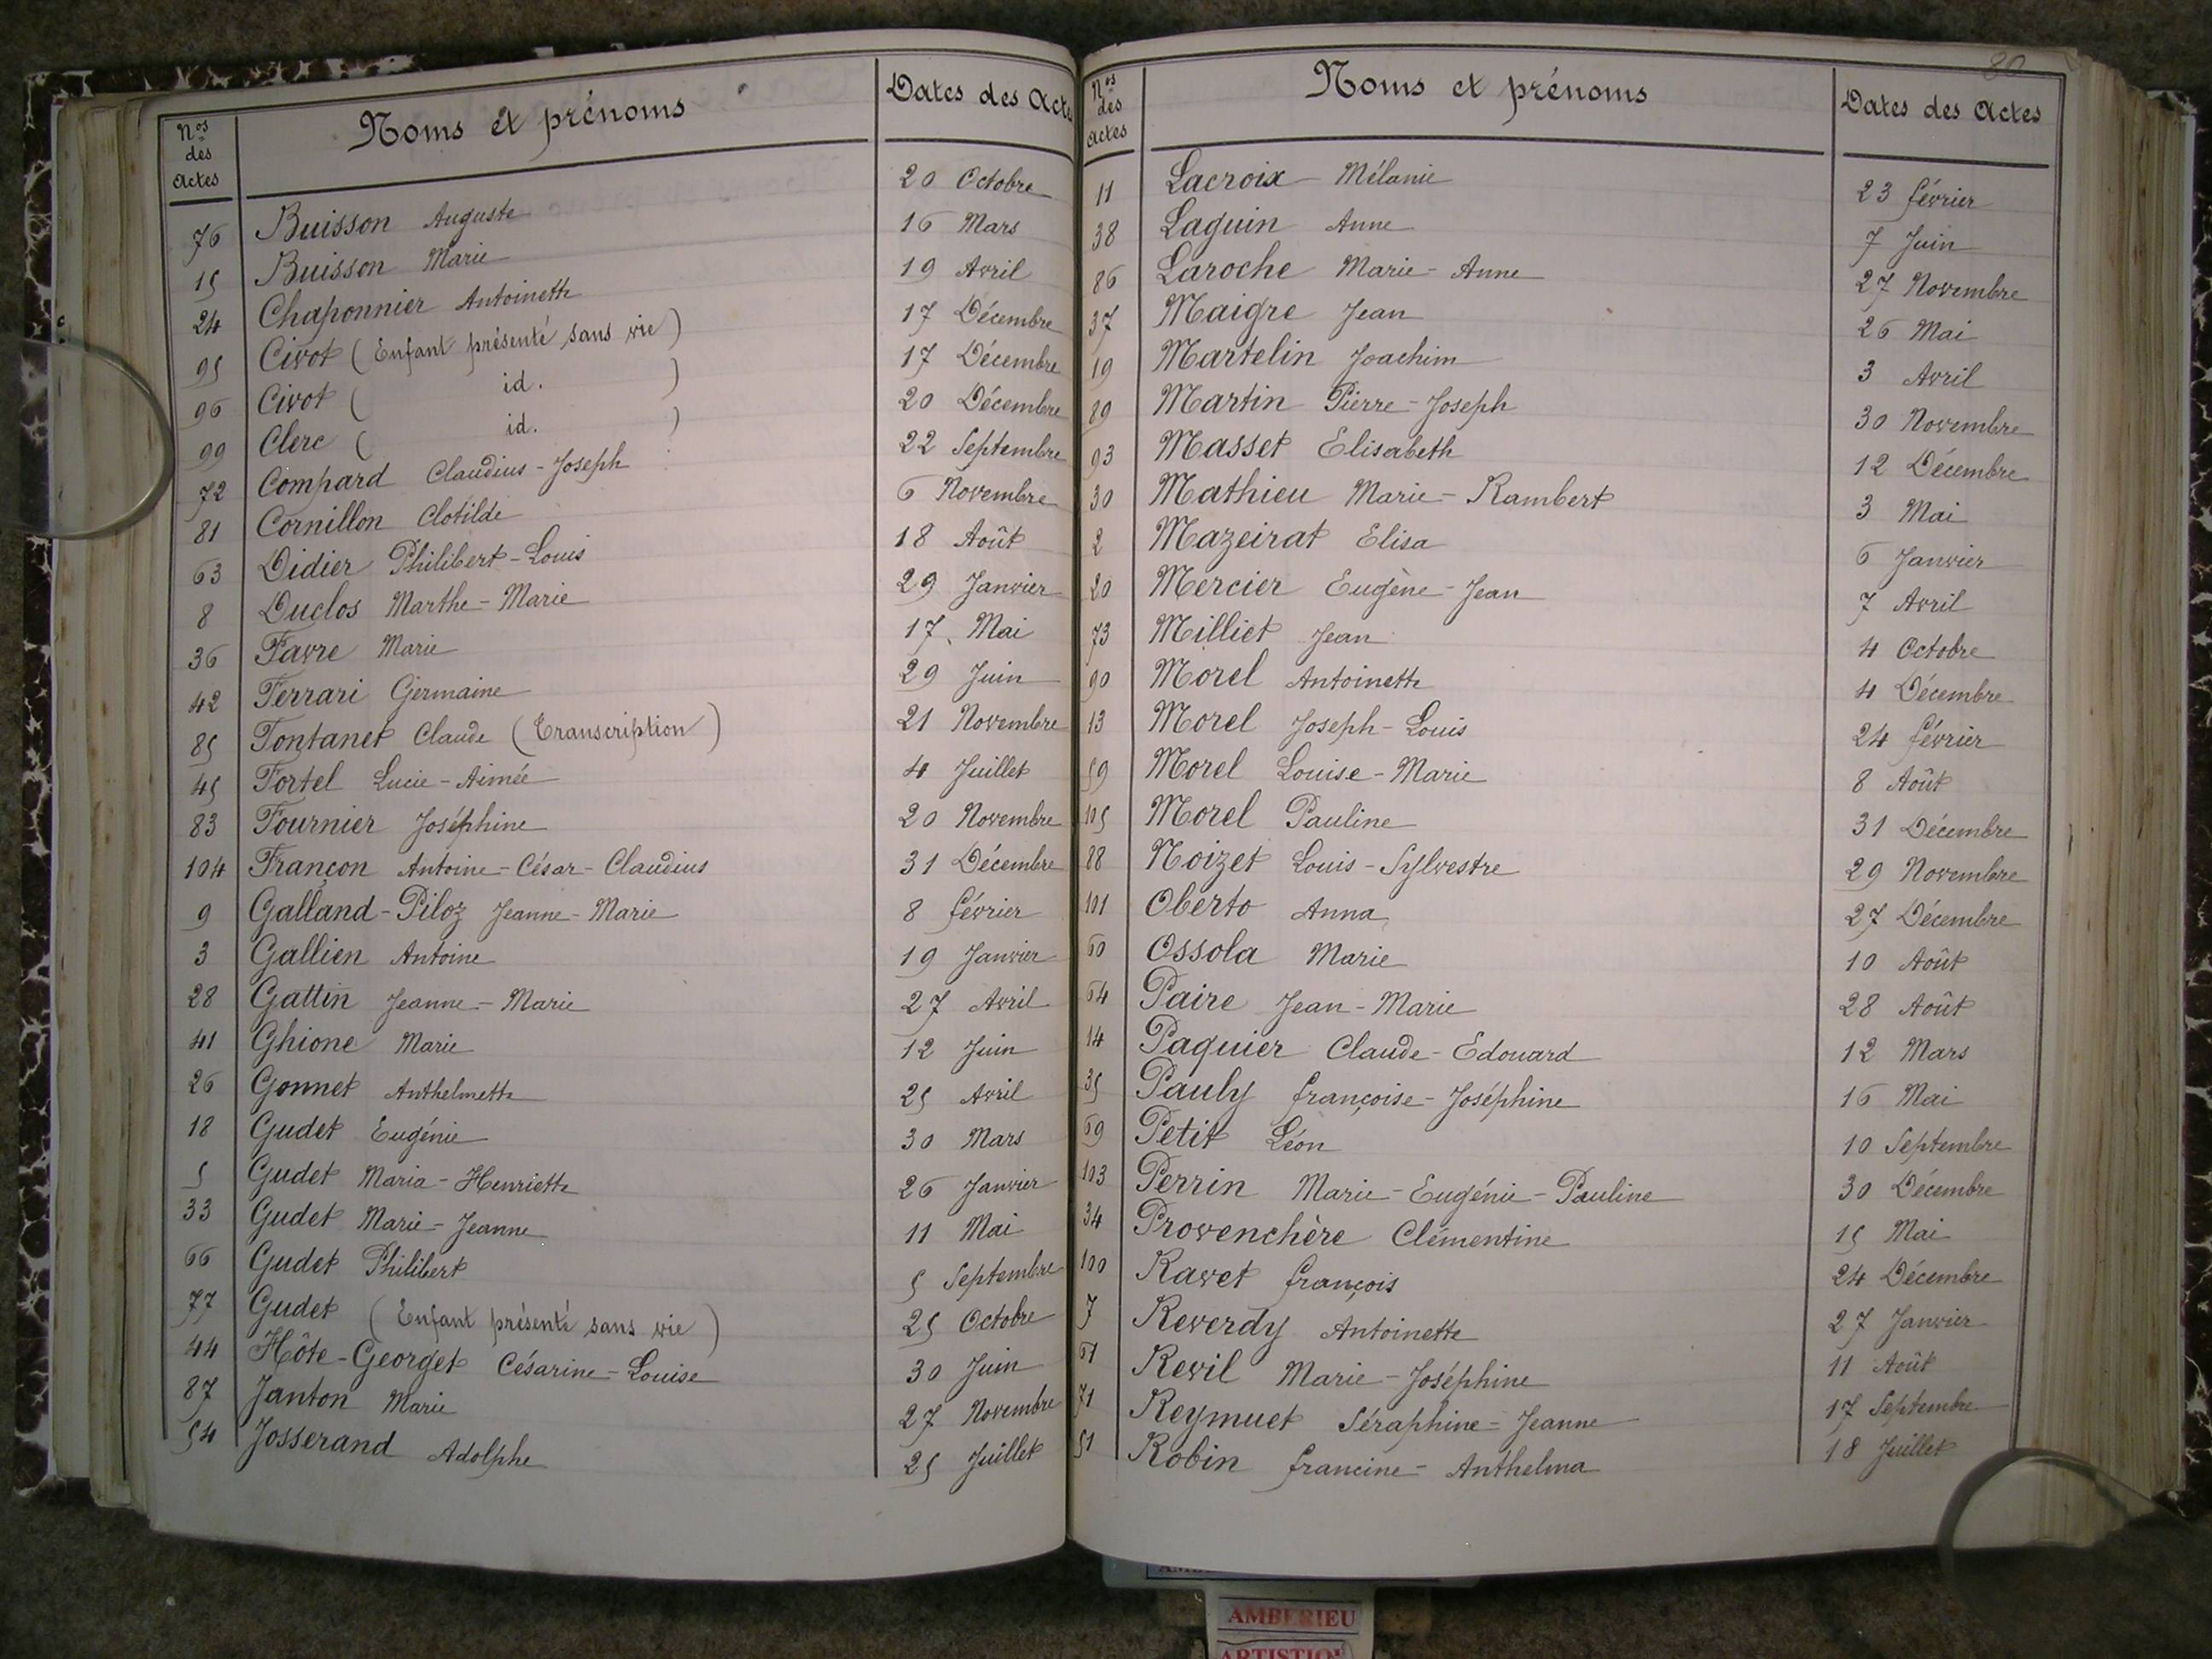 Nos des Actes Noms et prénoms Dates des Actes
76 Buisson Auguste 20 Octobre
15 Buisson Marie 16 Mars
24 Chaponnier Antoinette 19 Avril
95 Civot (Enfant présenté sans vie) 17 Décembre
96 Civot ( id. ) 17 Décembre
99 Clerc ( id. ) 20 Décembre
72 Compard Claudius-Joseph 22 Septembre
81 Cornillon Clotilde 6 Novembre
63 Didier Philibert-Louis 18 Août
8 Duclos Marthe-Marie 29 Janvier
36 Favre Marie 17 Mai
42 Ferrari Germaine 29 Juin
85 Fontanet Claude (Transcription) 21 Novembre
45 Fortel Lucie-Aimée 4 Juillet
83 Fournier Joséphine 20 Novembre
104 Françon Antoine-César-Claudius 31 Décembre
9 Galland-Piloz Jeanne-Marie 8 février
3 Gallien Antoine 19 Janvier
28 Gattin Jeanne-Marie 27 Avril
41 Ghione Marie 12 Juin
26 Gonnet Anthelmette 25 Avril
18 Gudet Eugénie 30 Mars
5 Gudet Maria-Henriette 26 Janvier
33 Gudet Marie-Jeanne 11 Mai
66 Gudet Philibert 5 Septembre
77 Gudet (Enfant présenté sans vie) 25 Octobre
44 Hôte-Georget Césarine-Louise 30 Juin
87 Janton Marie 27 Novembre
54 Josserand Adolphe 25 Juillet
80
Nos des Actes Noms et prénoms Dates des Actes
11 Lacroix Mélanie 23 février
38 Laguin Anne 7 Juin
86 Laroche Marie-Anne 27 Novembre
37 Maigre Jean 26 Mai
19 Martelin Joachim 3 Avril
89 Martin Pierre-Joseph 30 Novembre
93 Masset Elisabeth 12 Décembre
30 Mathieu Marie-Rambert 3 Mai
2 Mazeirat Elisa 6 Janvier
20 Mercier Eugène-Jean 7 Avril
73 Milliet Jean 4 Octobre
90 Morel Antoinette 4 Décembre
13 Morel Joseph-Louis 24 février
59 Morel Louise-Marie 8 Août
105 Morel Pauline 31 Décembre
88 Noizet Louis-Sylvestre 29 Novembre
101 Oberto Anna 27 Décembre
60 Ossola Marie 10 Août
64 Paire Jean-Marie 28 Août
14 Paquier Claude-Edouard 12 Mars
35 Pauly françoise-Joséphine 16 Mai
69 Petit Léon 10 Septembre
103 Perrin Marie-Eugénie-Pauline 30 Décembre
34 Provenchère Clémentine 15 Mai
100 Ravet françois 24 Décembre
7 Reverdy Antoinette 27 Janvier
61 Revil Marie-Joséphine 11 Août
71 Reymuet Séraphine-Jeanne 17 Septembre
51 Robin francine-Anthelma 18 Juillet
AMBERIEU